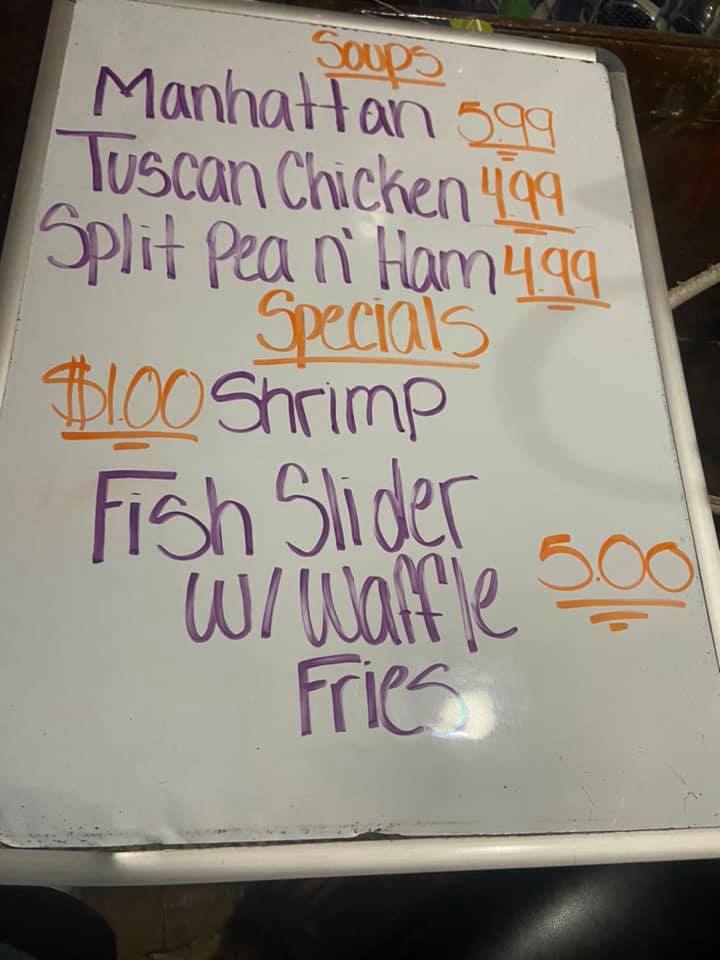 Soups
Manhattan 5.99
Tuscan Chicken 4.99
Split Pea n' Ham 4.99
Specials
$1.00 Shrimp
Fish Slider
W/ Waffle 5.00
Fries